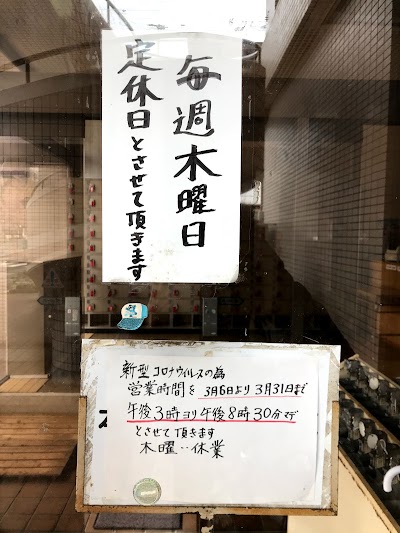 毎週木曜日
定休日とさせて頂きます
新型コロナウィルスの為
営業時間を 3月6日より3月31日まで
午後3時ヨリ午後8時30分マデ
とさせて頂きます
木曜‥休業